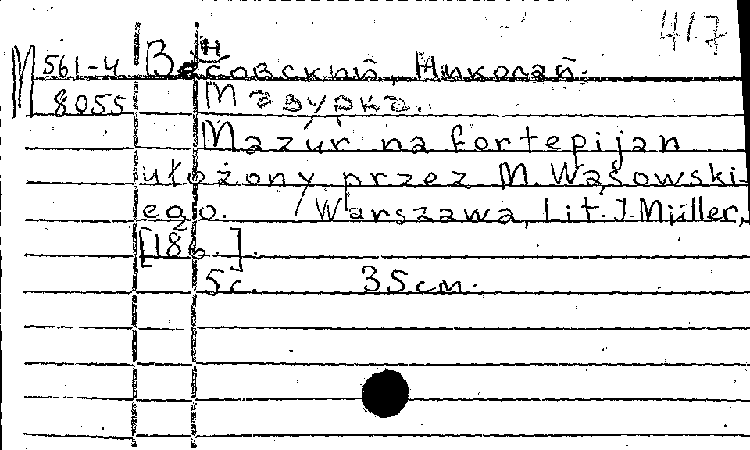 417
М 561-4 Вансовский, Николай.
8055 Мазурка.
Mazur na fortepijan
ułożony przez M. Wąsowski-
ego. Warszawa, Lit. J. Müller,
[186.].
5 с. 35 см.